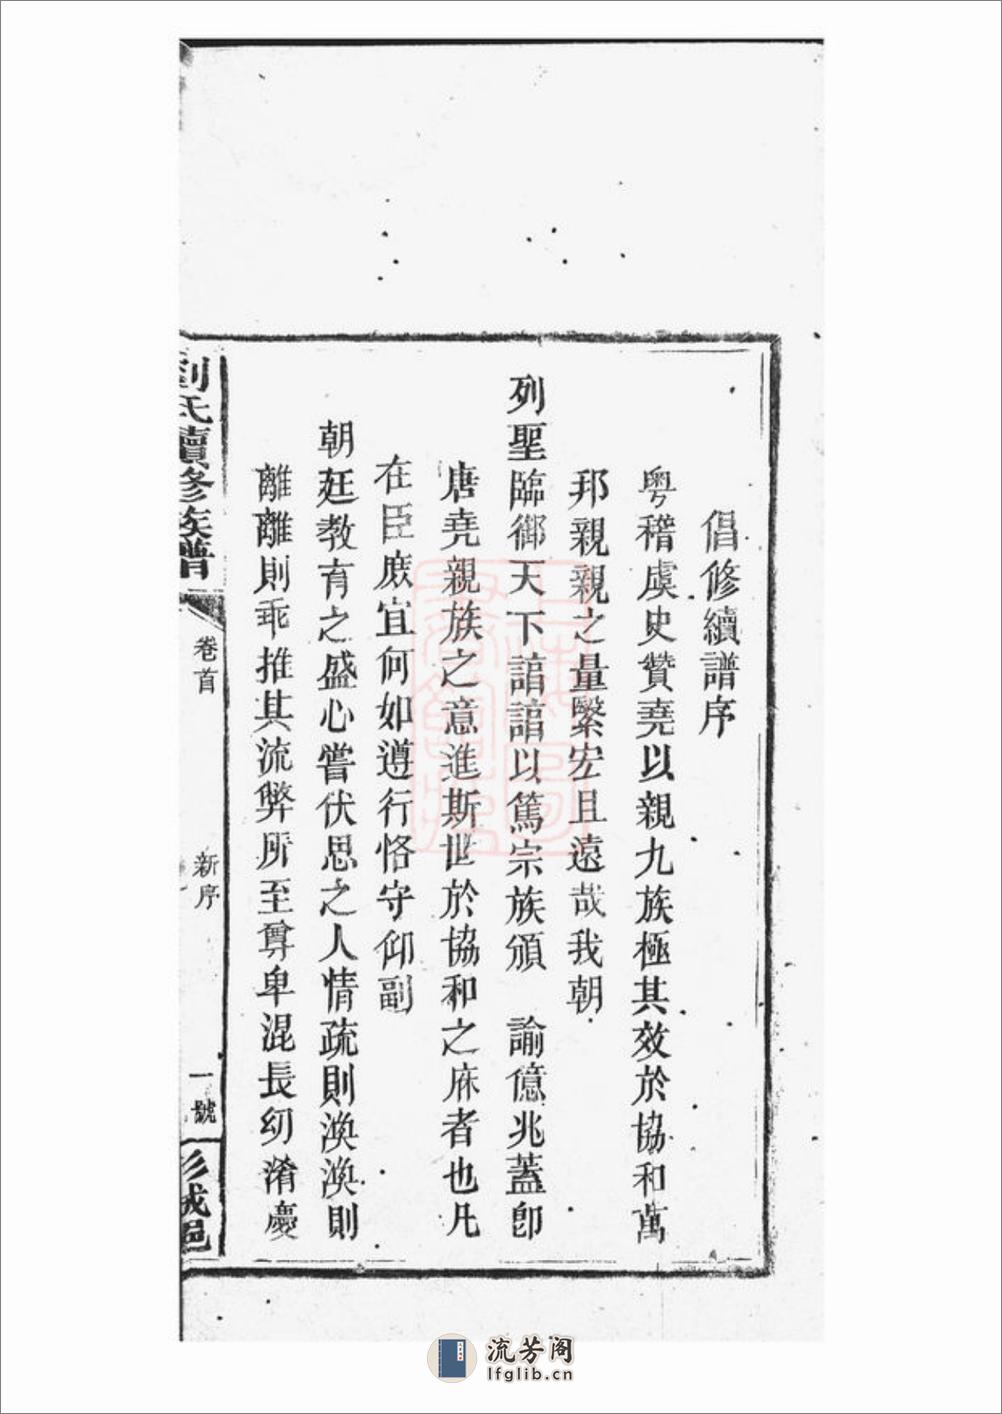 倡修續譜序
粤稽虞史贊堯以親九族極其效於協和萬
邦親親之量繄宏且遠哉我朝
列聖臨御天下諳諳以篤宗族頒　諭億兆蓋卽
唐堯親族之意進斯世於協和之庥者也凡
在臣庶宜何如遵行恪守仰副
朝廷教有之盛心嘗伏思之人情疏則渙渙則
離離則乖推其流弊所至尊卑混長幼淆慶
劉氏續修族譜
卷首
新序
一號
彭城邑
流芳阁
lfglib.cn